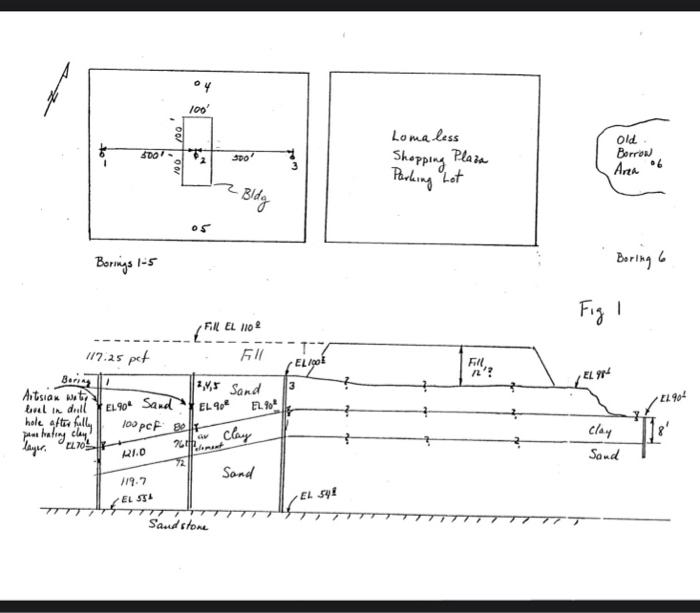 N
o 4
100'
100'
100'
500'
2
500'
1
3
Bldg
o 5
Borings 1-5
Lomaless
Shopping Plaza
Parking Lot
Old
Borrow
Area o6
Boring 6
Fig 1
Fill EL 110±
117.25 pcf
Fill
EL 100±
Fill
12'?
EL 98±
EL 90±
Boring
1
2,4,5
Sand
3
Artesian water
level in drill
hole after fully
penetrating clay
layer.
EL 70±
EL 90±
Sand
EL 90±
EL 90±
100 pcf
80
Clay
121.0
76
av
element
72
Sand
119.7
EL 55±
EL 54±
Sandstone
?
?
?
?
?
?
?
?
?
Clay
8'
Sand